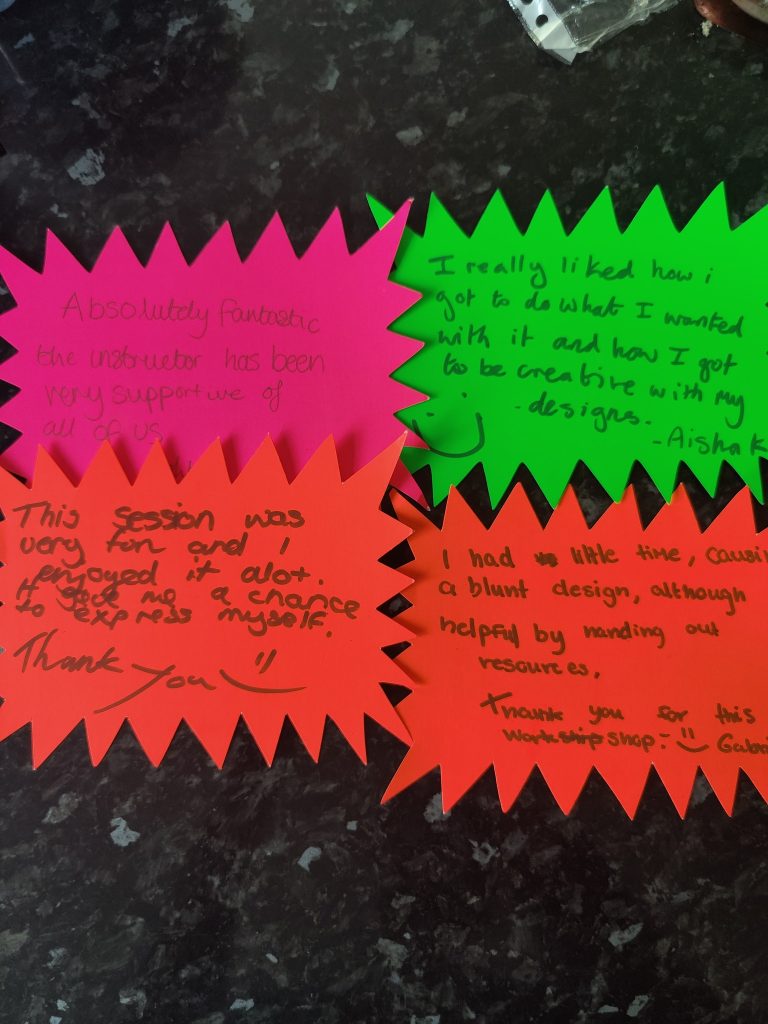 Absolutely fantastic
the instructor has been
very supportive of
all of us
I really liked how i
got to do what I wanted
with it and how I got
to be creative with my
- designs.
- Aisha K
This session was
very fun and I
enjoyed it alot.
It gave me a chance
to express myself.
Thank you
I had little time,
a blunt design, although
helpful by handing out
resources,
Thank you for this
workshop